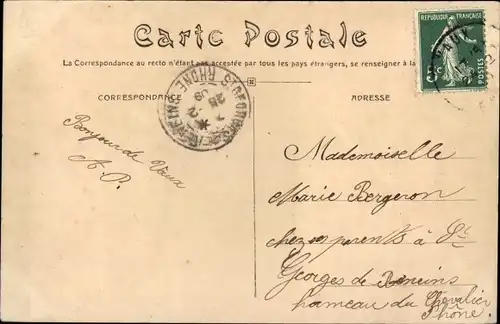 Carte Postale
La Correspondance au recto n'étant pas acceptée par tous les pays étrangers, se renseigner à la
CORRESPONDANCE
ADRESSE
RÉPUBLIQUE FRANÇAISE
5c
VAUX
RHONE
Bonjour de Vaux
A. P.
Mademoiselle
Marie Bergeron
chez ses parents à St
Georges de Reneins
hameau du Chevalier
Rhône